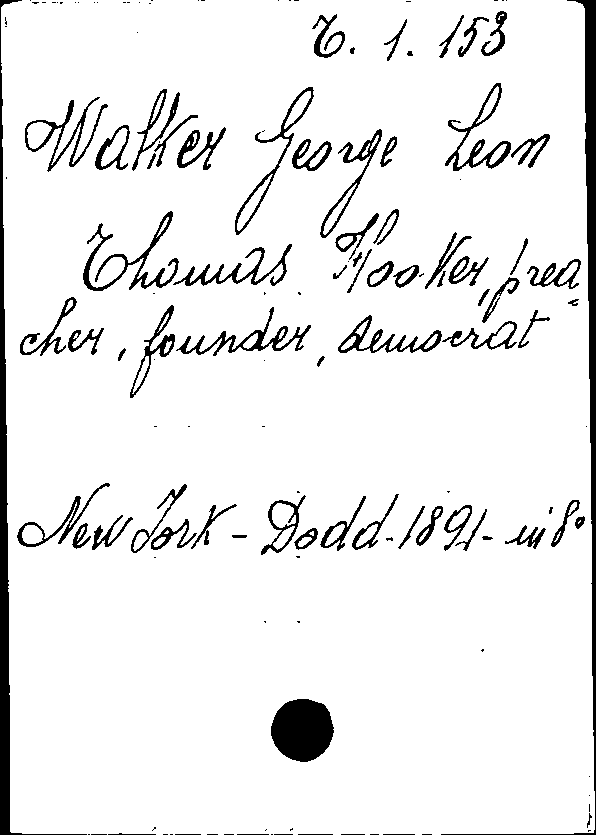 T. 1. 153
Walker George Leon
Thomas Hooker, prea=
cher, founder, democrat
New York - Dodd - 1891 - in 8°